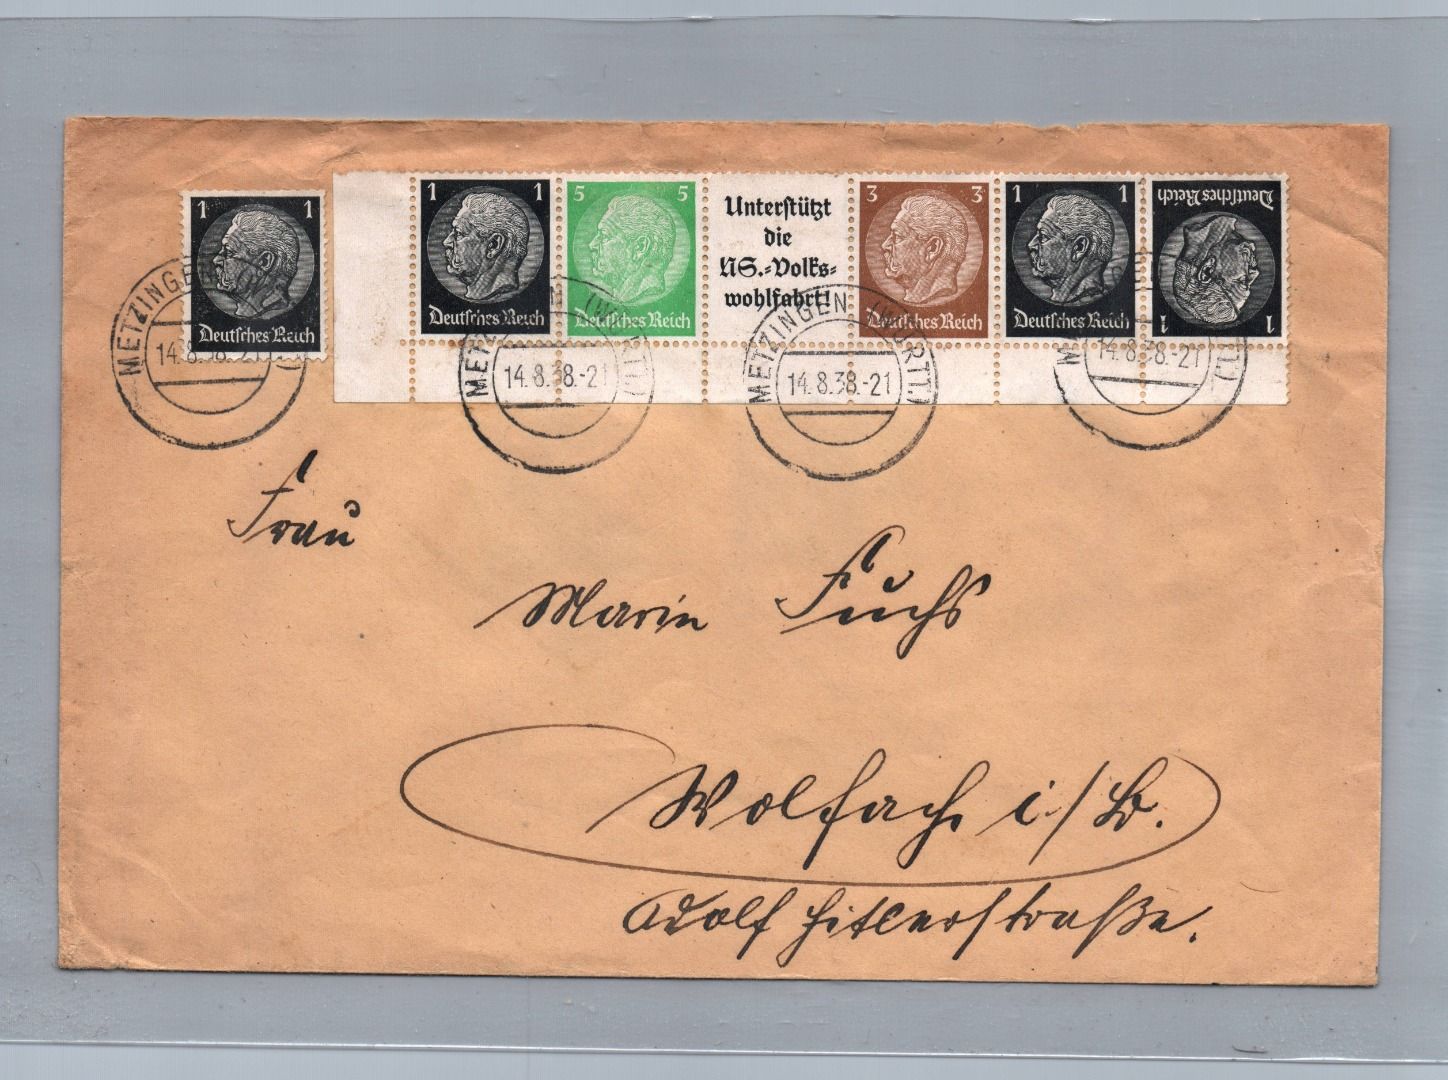 1 1
Deutsches Reich
1 1
Deutsches Reich
5 5
Deutsches Reich
Unterstützt
die
NS.-Volks-
wohlfahrt!
3 3
Deutsches Reich
1 1
Deutsches Reich
1 1
Deutsches Reich
METZINGEN (WÜRTT.)
14.8.38.-21
METZINGEN (WÜRTT.)
14.8.38.-21
METZINGEN (WÜRTT.)
14.8.38.-21
METZINGEN (WÜRTT.)
14.8.38.-21
Frau
Marie Fuchs
Wolfach i/B.
Adolf Hitlerstraße.